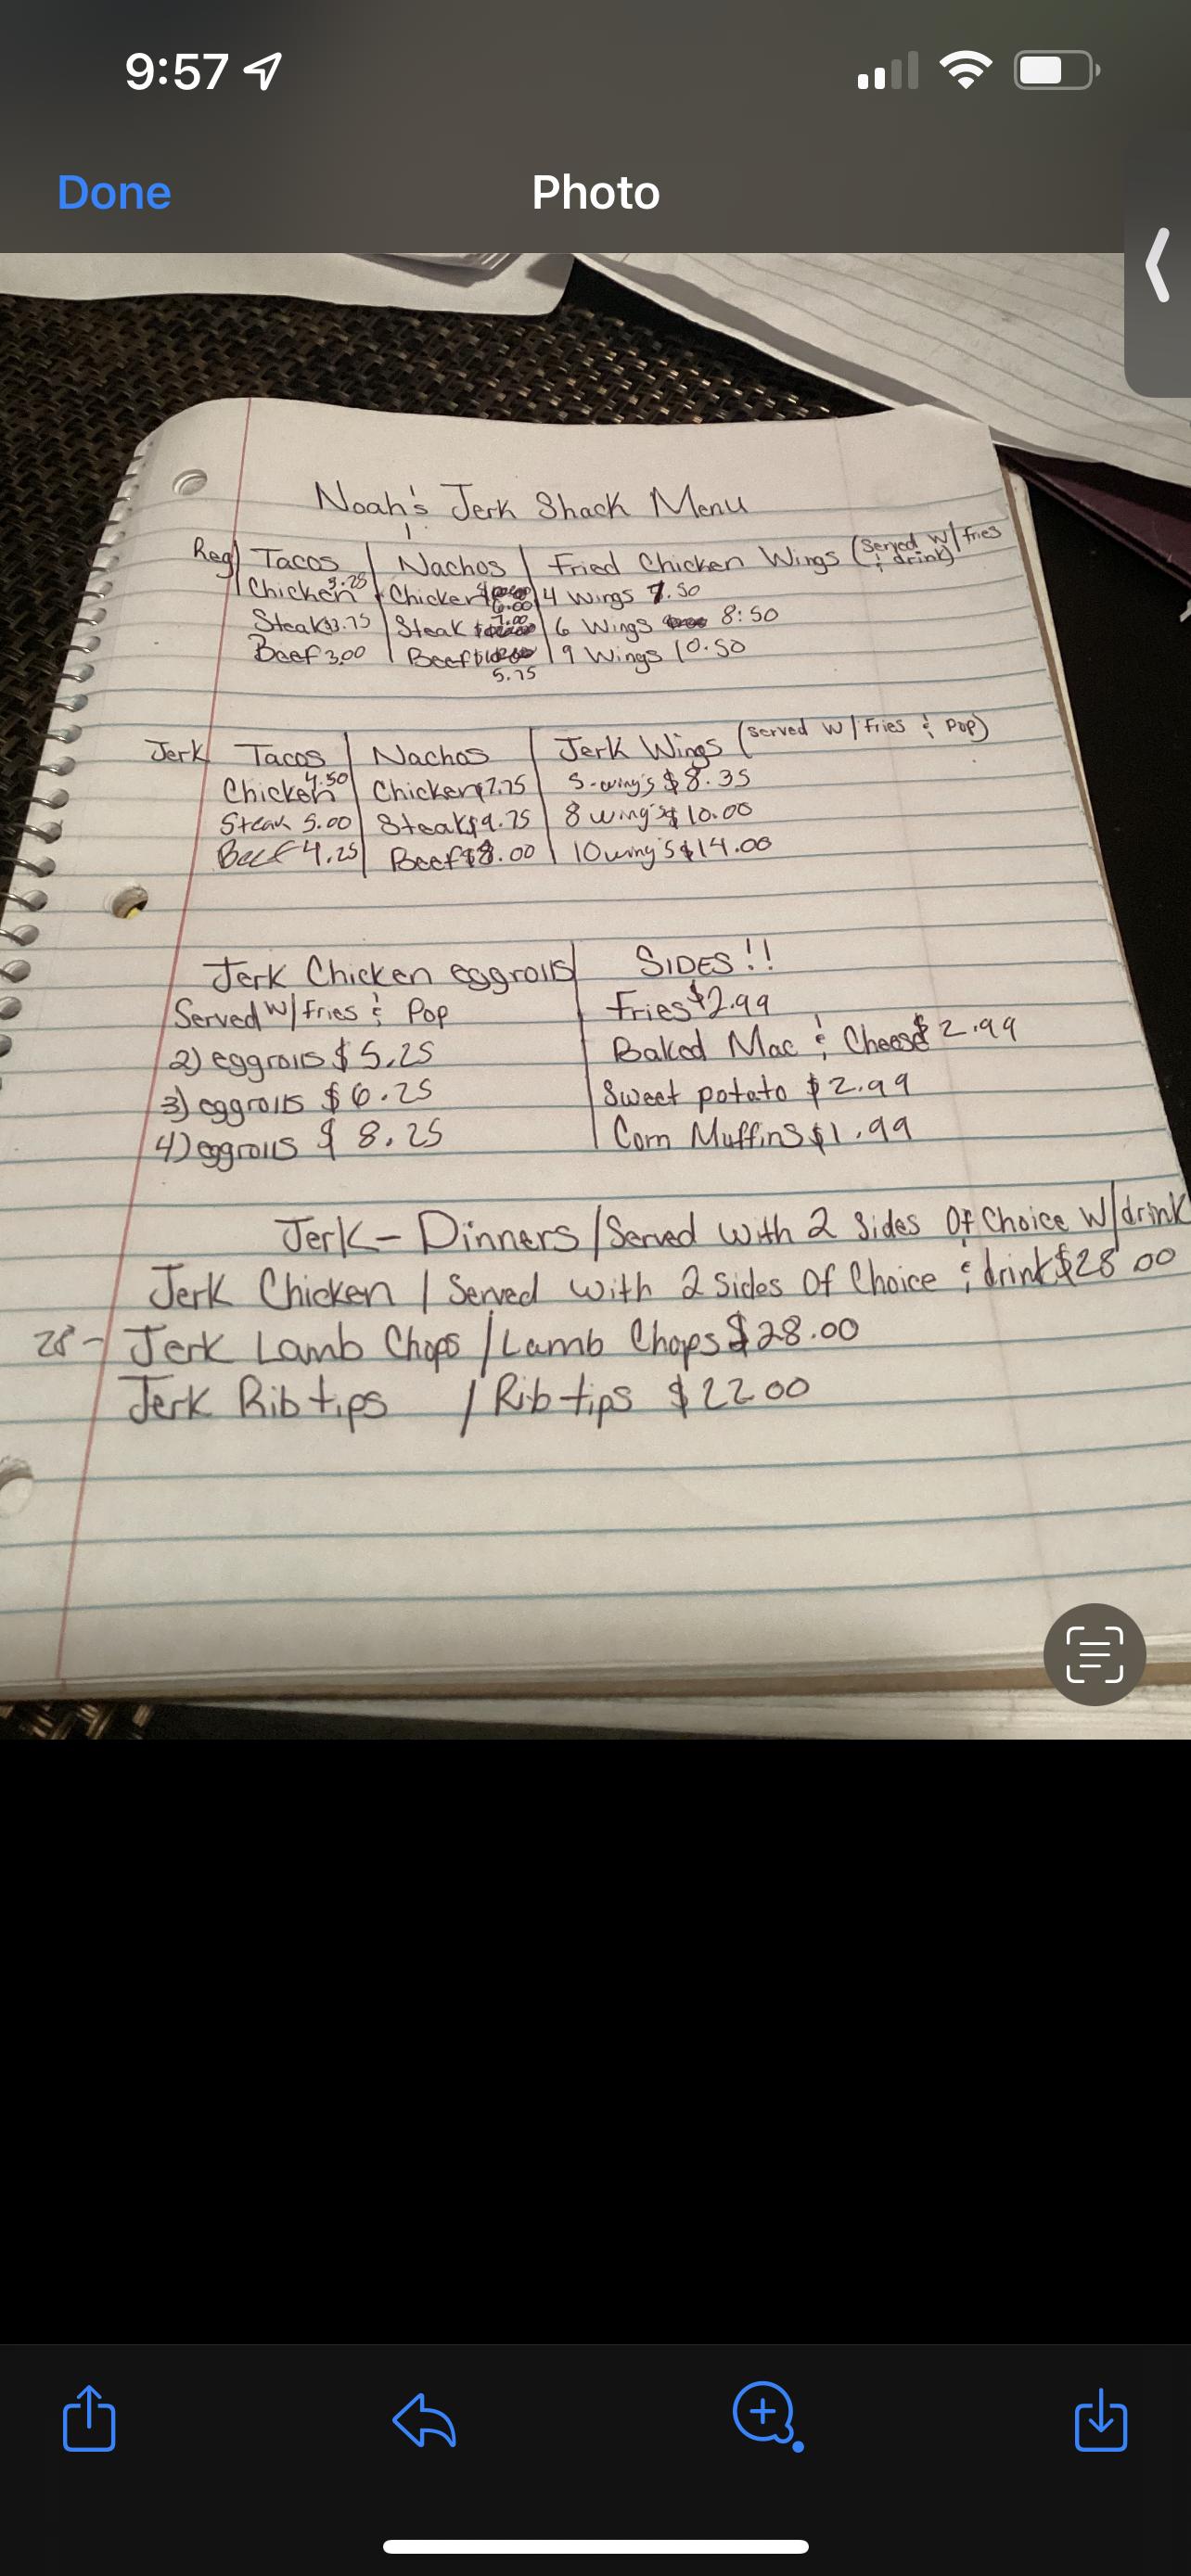 9:57
Done
Photo
Noah's Jerk Shack Menu
Reg Tacos Nachos Fried Chicken Wings (Served w/ fries & drink)
Chicken 3.25 Chicken 6.00 4 Wings 7.50
Steak $3.75 Steak $ 7.00 6 Wings 8:50
Beef 3.00 Beef 5.75 9 Wings 10.50
Jerk Tacos Nachos Jerk Wings (served w/ fries & pop)
Chicken 4.50 Chicken $7.75 5-wing's $8.35
Steak 5.00 Steak $9.75 8 wing's $10.00
Beef 4.25 Beef $8.00 10 wing's $14.00
Jerk Chicken eggrolls SIDES!!
Served w/ fries & Pop Fries $2.99
2) eggrolls $5.25 Baked Mac & Cheese $2.99
3) eggrolls $6.25 Sweet potato $2.99
4) eggrolls $8.25 Corn Muffins $1.99
Jerk- Dinners / Served with 2 sides Of Choice w/ drink
Jerk Chicken / Served with 2 Sides Of Choice & drink $28 00
28 - Jerk Lamb Chops / Lamb Chops $28.00
Jerk Rib tips / Rib tips $22 00